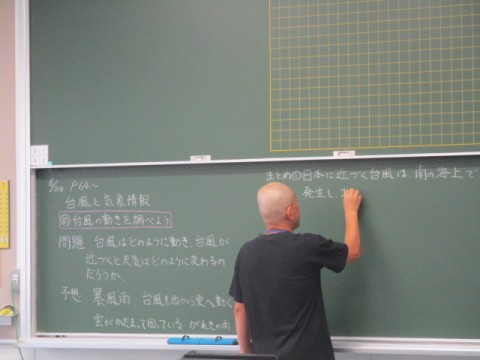 6/24 P64～
台風と気象情報
め 台風の動きを調べよう
問題 台風はどのように動き、台風が
近づくと天気はどのように変わるの
だろうか。
予想 暴風雨、台風も西から東へ動く
雲がかたまって回っている
まとめ①日本に近づく台風は、南の海上で
発生し、